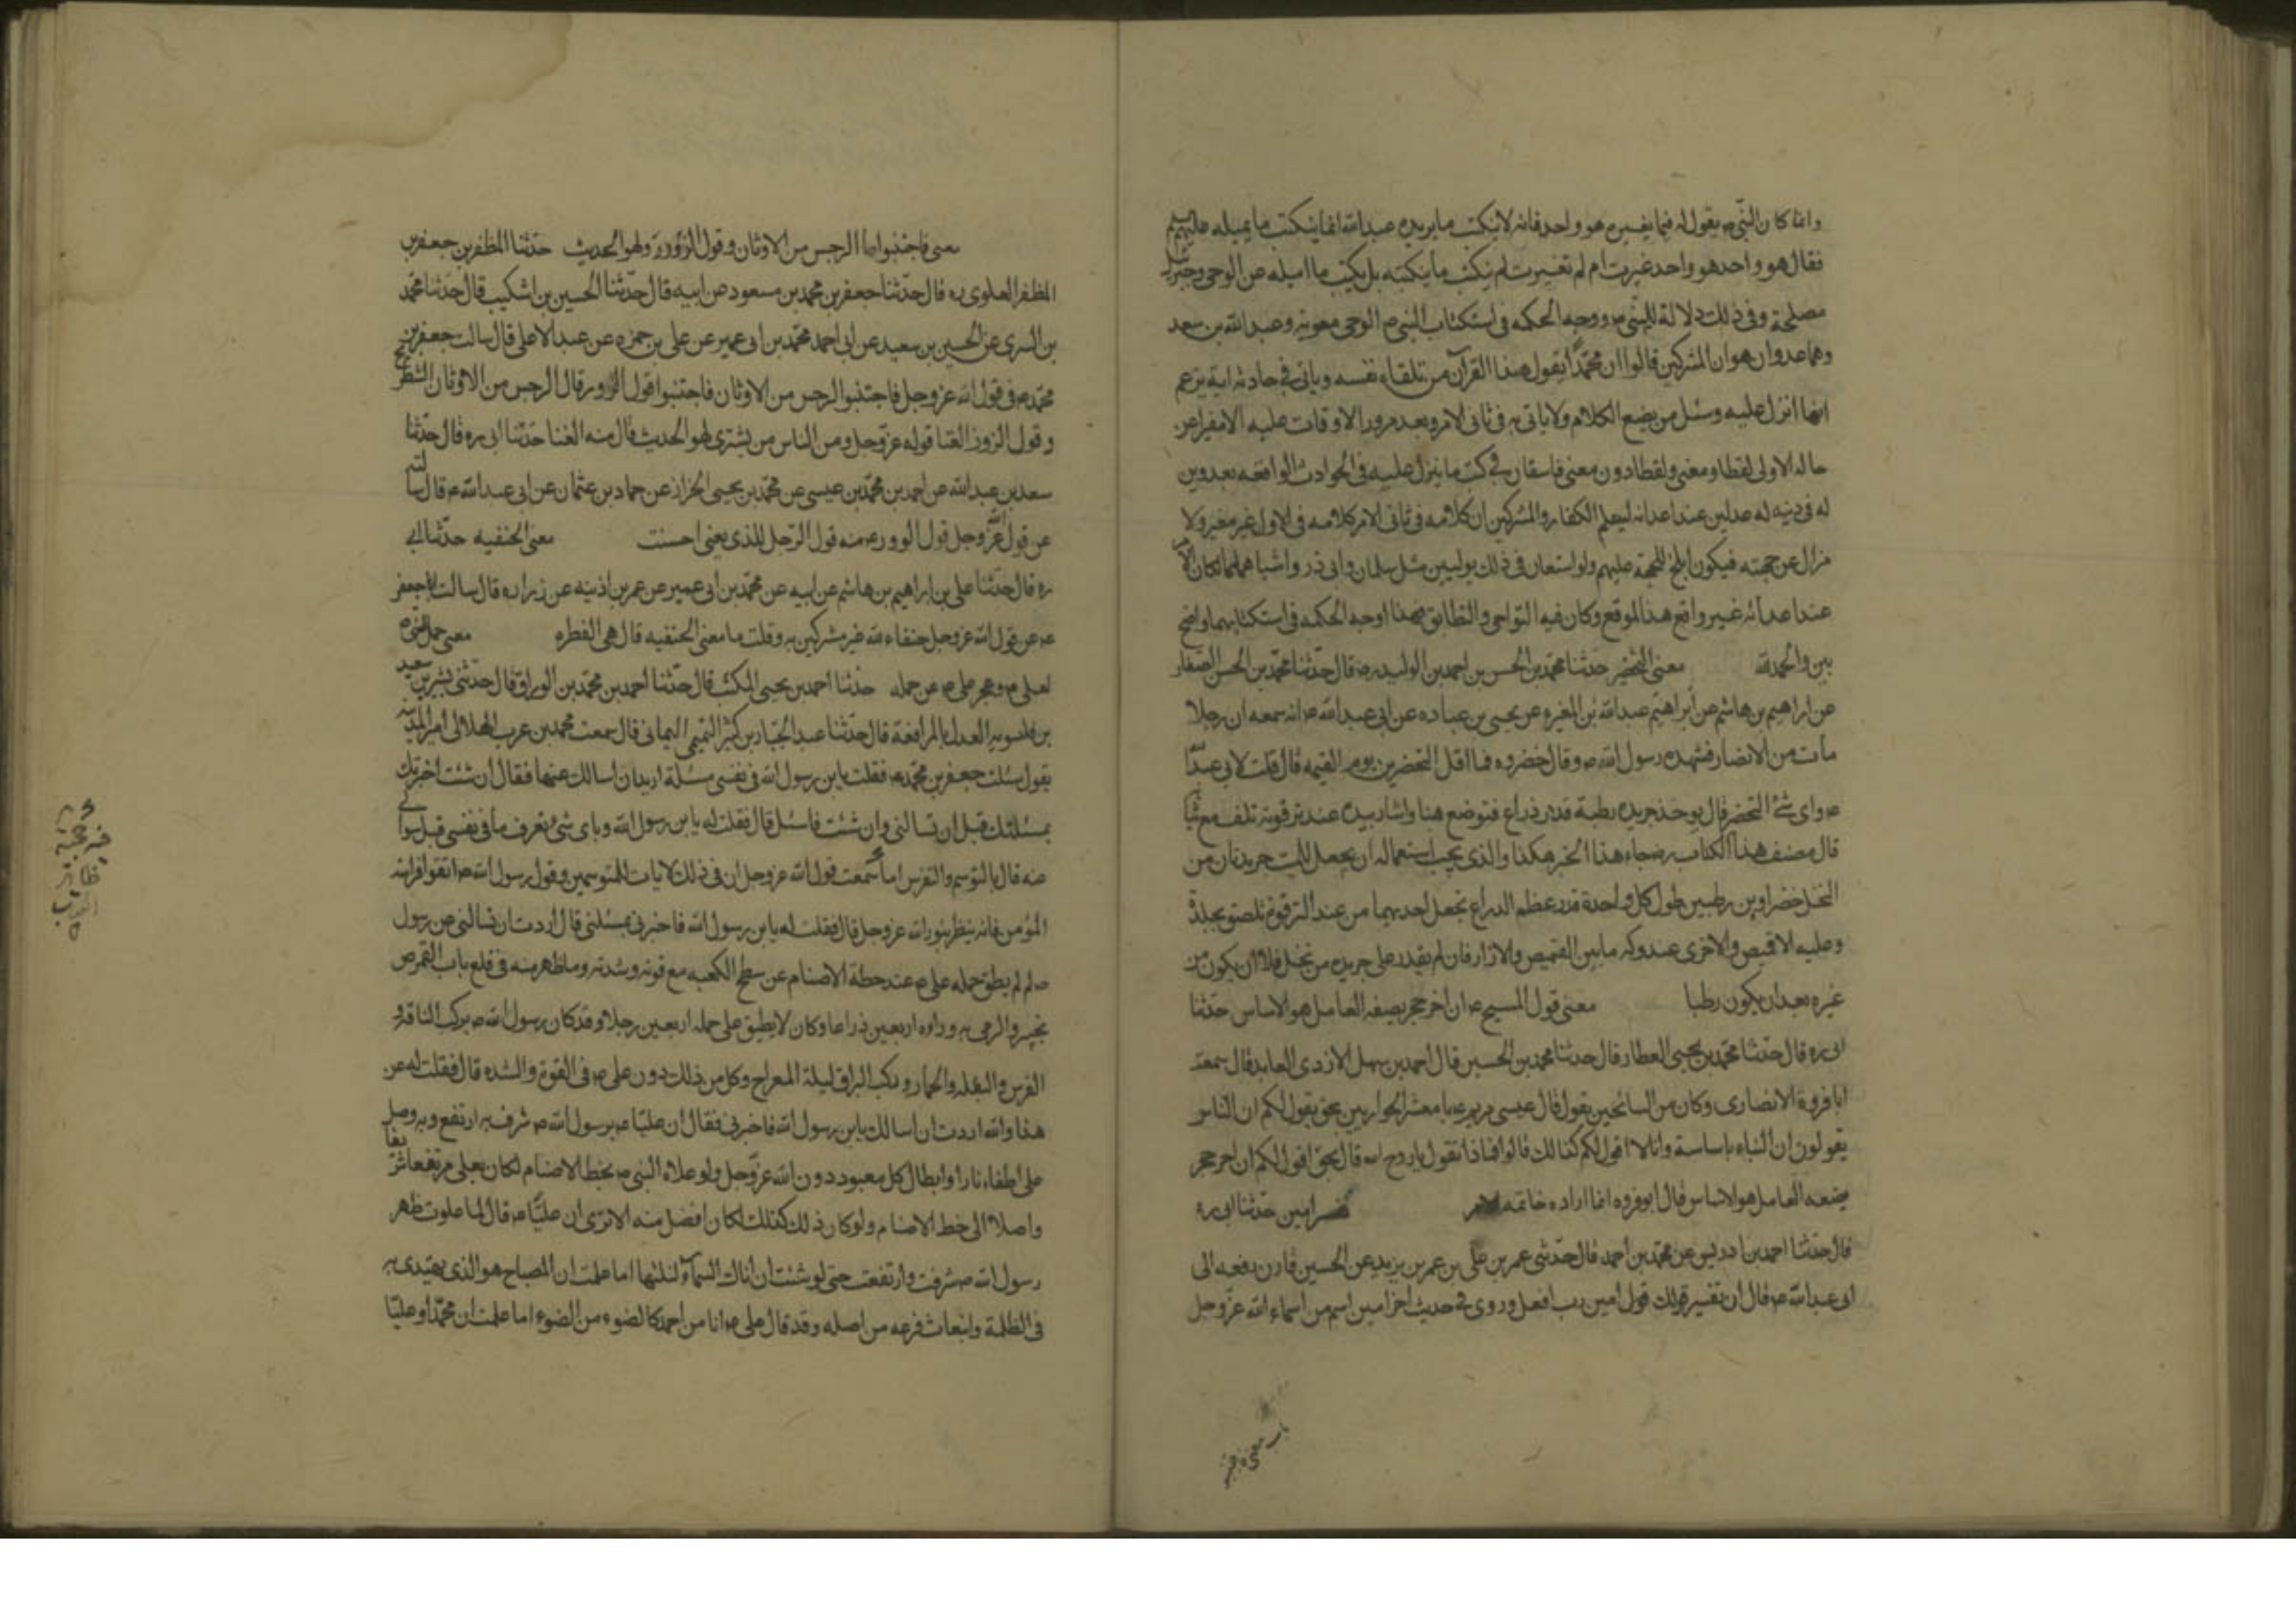 وانما كان النبى ص يقول له فيما يغيره هو واحد فانه لا ينكتب ما يريده عبد الله انما ينكتب ما يمليه عليه
فقال هو واحد هو واحد غيرت ام لم تغير ت لم ينكتب ما يكتبه بل يكتب ما امليه عن الوحى وجبرئيل
مصلحة وفى ذلك دلالة للنبى ص ووجه الحكمه فى استكتاب النبى ص الوحى معوية وعبد الله بن سعد
وهما عدوان هو ان المشركين قالوا ان محمدا يقول هذا القرآن من تلقاء نفسه وياتى فى حادثه اية يزعم
انها انزل عليه وسئل من يضع الكلام ولا ياتى به فى ثانى الامر وبعد مرور الاوقات عليه الا مغيرا عن
حاله الاولى لفظا ومعنى ولفظا دون معنى فاستعان فى كتب ما ينزل عليه فى الحوادث الواقعه بعدوين
له فى دينه له عدلين عند اعدائه ليعلم الكفار والمشركين ان كلامه فى ثانى الامر كلامه فى الاول غير مغير ولا
مزال عن جهته فيكون ابلغ للحجة عليهم ولو استعان فى ذلك بوليين مثل سلمان وابى ذر واشباههما لكان الامر
عند اعدائه غير واقع هذا الموقع وكان فيه التواطى والتطابق فهذا وجه الحكمه فى استكتابهما واضح
بين والحمد لله معنى التخضير حدثنا محمد بن الحسن بن احمد بن الوليد ره قال حدثنا محمد بن الحسن الصفار
عن ابراهيم بن هاشم عن ابراهيم عبد الله بن المغيره عن يحيى بن عباده عن ابى عبد الله ع انه سمعه ان رجلا
مات من الانصار فشهده رسول الله ص وقال خضروه فما اقل المتخضرين يوم القيمه قال قلت لابى عبد الله
ع واى شئ التخضر قال يوخذ جريده رطبة قدر ذراع فتوضع هنا واشار بيده عند ترقوته تلف مع ثيابه
قال مصنف هذا الكتاب رض جاء هذا الخبر هكذا والذى يجب استعماله ان يجعل للميت جريدتان من
النخل خضراوين رطبين طول كل واحدة قدر عظم الذراع تجعل احديهما من عند الترقوة تلصق بجلده
وعليه الاقميص والاخرى عند وركه ما بين القميص والازار فان لم يقدر على جريده من نخل فلا ان يكون من
غيره بعد ان يكون رطبا معنى قول المسيح ع ان اخر حجر يضعه العامل هو الاساس حدثنا
ابى ره قال حدثنا محمد بن يحيى العطار قال حدثنا محمد بن الحسين قال احمد بن سهل الازدى العابد قال سمعت
ابا فروة الانصارى وكان من السائحين يقول قال عيسى مريم ع يا معشر الحواريين بحق يقول لكم ان الناس
يقولون ان البناء باساسه وانا لا اقول لكم كذلك قالوا فماذا تقول يا روح الله قال بحق اقول لكم ان اخر حجر
يضعه العامل هو الاساس قال ابو فروه انما اراد ه خاتمه الامر امين حدثنا ابى ره
قال حدثنا احمد بن ادريس عن محمد بن احمد قال حدثنى عمر بن على بن عمر بن يزيد عن الحسين قارن رفعه الى
ابى عبد الله ع قال ان تفسير قولك قول امين رب افعل وروى فى حديث اخر امين اسم من اسماء الله عز وجل
معنى فاجتنبوا الرجس من الاوثان وقول الزور ولهو الحديث حدثنا المظفر بن جعفر بن
المظفر العلوى ره قال حدثنا جعفر بن محمد بن مسعود عن ابيه قال حدثنا الحسين بن اشكيب قال حدثنا محمد
بن السرى عن الحسين بن سعيد عن ابى احمد محمد بن ابى عمير عن على بن حمزه عن عبد الاعلى قال سالت جعفر بن
محمد ع فى قول الله عز وجل فاجتنبوا الرجس من الاوثان فاجتنبوا قول الزور قال الرجس من الاوثان الشطرنج
وقول الزور الغنا قوله عز وجل ومن الناس من يشترى لهو الحديث قال منه الغنا حدثنا ابى ره قال حدثنا
سعد بن عبد الله عن احمد بن محمد بن عيسى عن محمد بن يحيى الخزاز عن حماد بن عثمان عن ابى عبد الله ع قال سالته
عن قول عز وجل قول الزور منه قول الرجل للذى يغنى احسنت معنى الحنفيه حدثنا ابى
ره قال حدثنا على بن ابراهيم بن هاشم عن ابيه عن محمد بن ابى عمير عن عمر بن اذينه عن زراره قال سالت ابا جعفر
ع عن قول الله عز وجل حنفاء لله غير مشركين به وقلت ما معنى الحنفيه قال هى الفطره معنى حمل النبى ص
لعلى ع وعجز على ع عن حمله حدثنا احمد بن يحيى المكتب قال حدثنا احمد بن محمد بن الوراق قال حدثنى بشر بن سعيد
بن قلسويه العدل بالمرافعة قال حدثنا عبد الجبار بن كثير التميمى اليمانى قال سمعت محمد بن عرب الهلالى امير المدينه
يقول سئلت جعفر بن محمد ع فقلت يابن رسول الله فى نفسى مسئلة اريد ان اسالك عنها فقال ان شئت اخبرتك
بمسئلتك قبل ان تسالنى وان شئت فاسئل قال فقلت له يابن رسول الله وباى شى تعرف ما فى نفسى قبل سوالى
عنه قال بالتوسم والتفرس اما سمعت قول الله عز وجل ان فى ذلك لايات للمتوسمين وقول رسول الله ص اتقوا فراسة
المؤمن فانه ينظر بنور الله عز وجل قال فقلت له يابن رسول الله فاخبرنى بمسئلتى قال اردت ان تسالنى عن رسول
ص لم لم يطق حمله على ع عند حطه الاصنام عن سطح الكعبه مع قوته وشدته وما ظهر منه فى قلع باب القموص
بخيبر والرمى به وراه اربعين ذراعا وكان لا يطيق على حمله اربعين رجلا وقد كان رسول الله ص يركب الناقه و
الفرس والبغله والحمار وركب البراق ليلة المعراج وكل من ذلك دون على ع فى القوة والشده قال فقلت له عن
هذا والله اردت ان اسالك يابن رسول الله فاخبرنى فقال ان عليا ع برسول الله ص شرف به ارتفع وبه وصل
على اطفاء نارا وابطال كل معبود دون الله عز وجل ولو علاه النبى ص بخط الاصنام لكان بعلى مرتفعا شريفا
واصلا الى خط الاصنام ولو كان ذلك كذلك لكان افضل منه الا ترى ان عليا ع قال لما علوت ظهر
رسول الله ص شرفت وارتفعت حتى لو شئت ان انال السماء لنلتها اما علمت ان المصباح هو الذى يهتدى به
فى الظلمة وانبعاث فرعه من اصله وقد قال على ع انا من احمد كالضوء من الضوء اما علمت ان محمدا وعليا